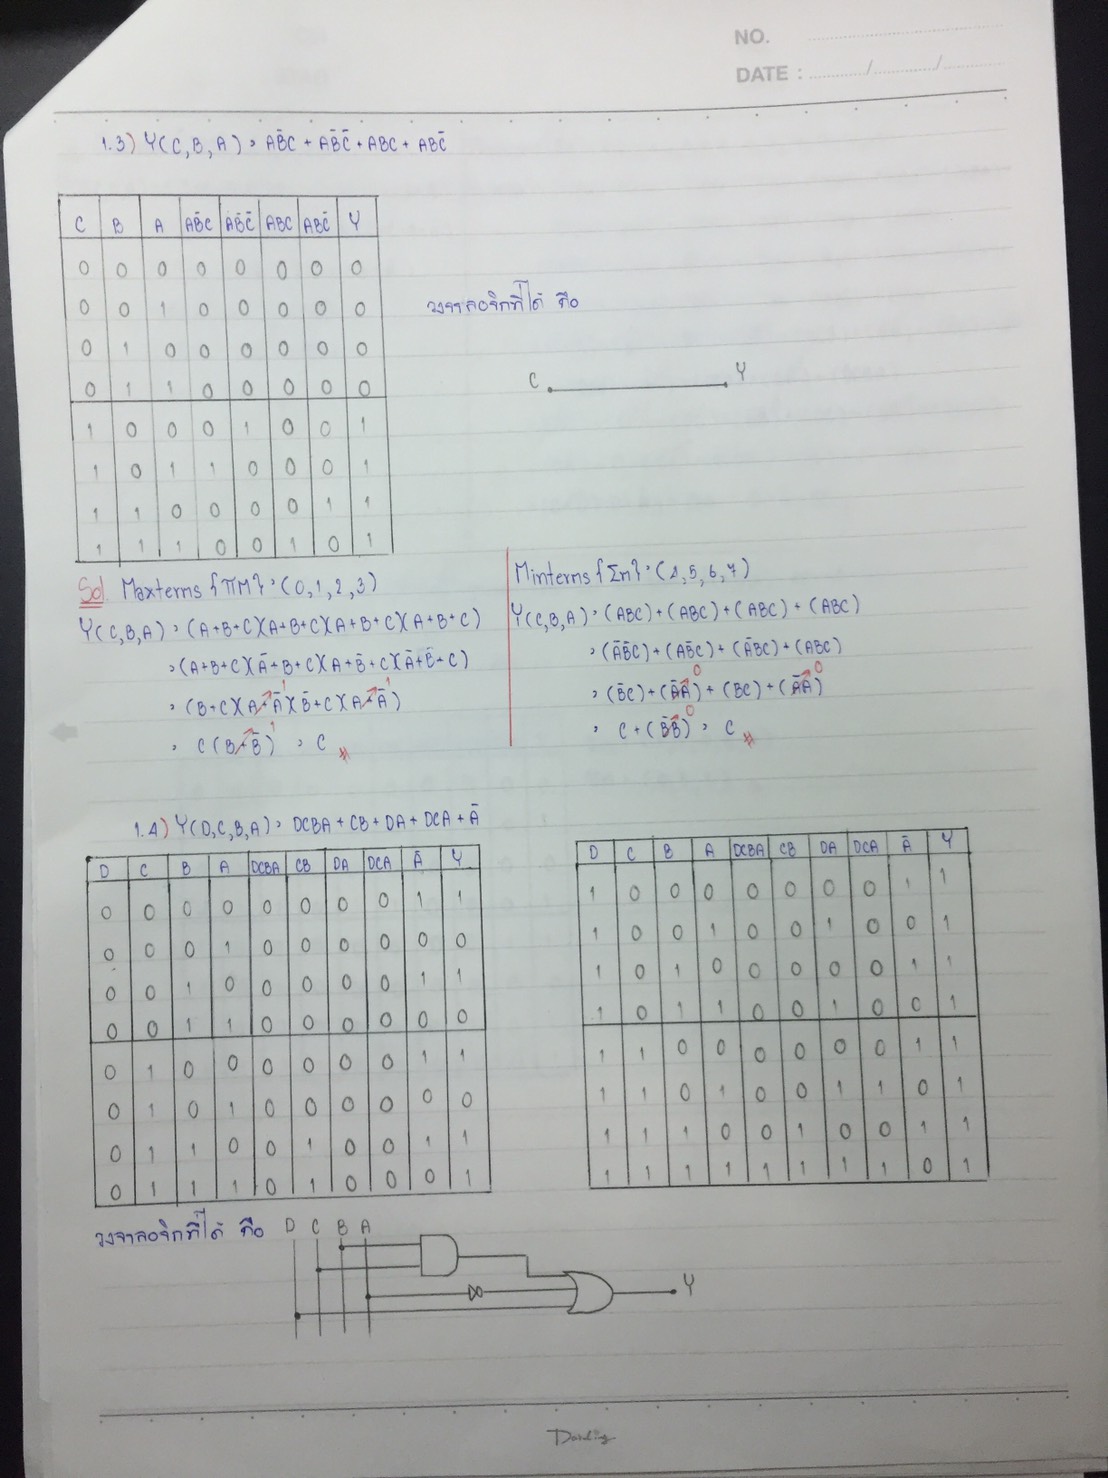 NO.
DATE :
1.3) Y(C,B,A) = AB̄C + AB̄C̄ + ABC + ABC̄
C B A AB̄C AB̄C̄ ABC ABC̄ Y
0 0 0 0 0 0 0 0
0 0 1 0 0 0 0 0
0 1 0 0 0 0 0 0
0 1 1 0 0 0 0 0
1 0 0 0 1 0 0 1
1 0 1 1 0 0 0 1
1 1 0 0 0 0 1 1
1 1 1 0 0 1 0 1
วงจรลอจิกที่ได้ คือ
C Y
Sol. Maxterms {πM} = (0,1,2,3)
Y(C,B,A) = (A+B+C)(A+B+C)(A+B+C)(A+B+C)
= (A+B+C)(Ā+B+C)(A+B̄+C)(Ā+B̄+C)
= (B+C)(A+Ā)¹(B̄+C)(A+Ā)¹
= C(B+B̄)¹ = C
Minterms {Σm} = (4,5,6,7)
Y(C,B,A) = (ABC)+(ABC)+(ABC)+(ABC)
= (ĀB̄C)+(AB̄C)+(ĀBC)+(ABC)
= (B̄C)+(ĀA)⁰+(BC)+(ĀA)⁰
= C+(B̄B)⁰ = C
1.4) Y(D,C,B,A) = DCBA + CB + DA + DCA + Ā
D C B A DCBA CB DA DCA Ā Y
0 0 0 0 0 0 0 0 1 1
0 0 0 1 0 0 0 0 0 0
0 0 1 0 0 0 0 0 1 1
0 0 1 1 0 0 0 0 0 0
0 1 0 0 0 0 0 0 1 1
0 1 0 1 0 0 0 0 0 0
0 1 1 0 0 1 0 0 1 1
0 1 1 1 0 1 0 0 0 1
D C B A DCBA CB DA DCA Ā Y
1 0 0 0 0 0 0 0 1 1
1 0 0 1 0 0 1 0 0 1
1 0 1 0 0 0 0 0 1 1
1 0 1 1 0 0 1 0 0 1
1 1 0 0 0 0 0 0 1 1
1 1 0 1 0 0 1 1 0 1
1 1 1 0 0 1 0 0 1 1
1 1 1 1 1 1 1 1 0 1
วงจรลอจิกที่ได้ คือ D C B A
Y